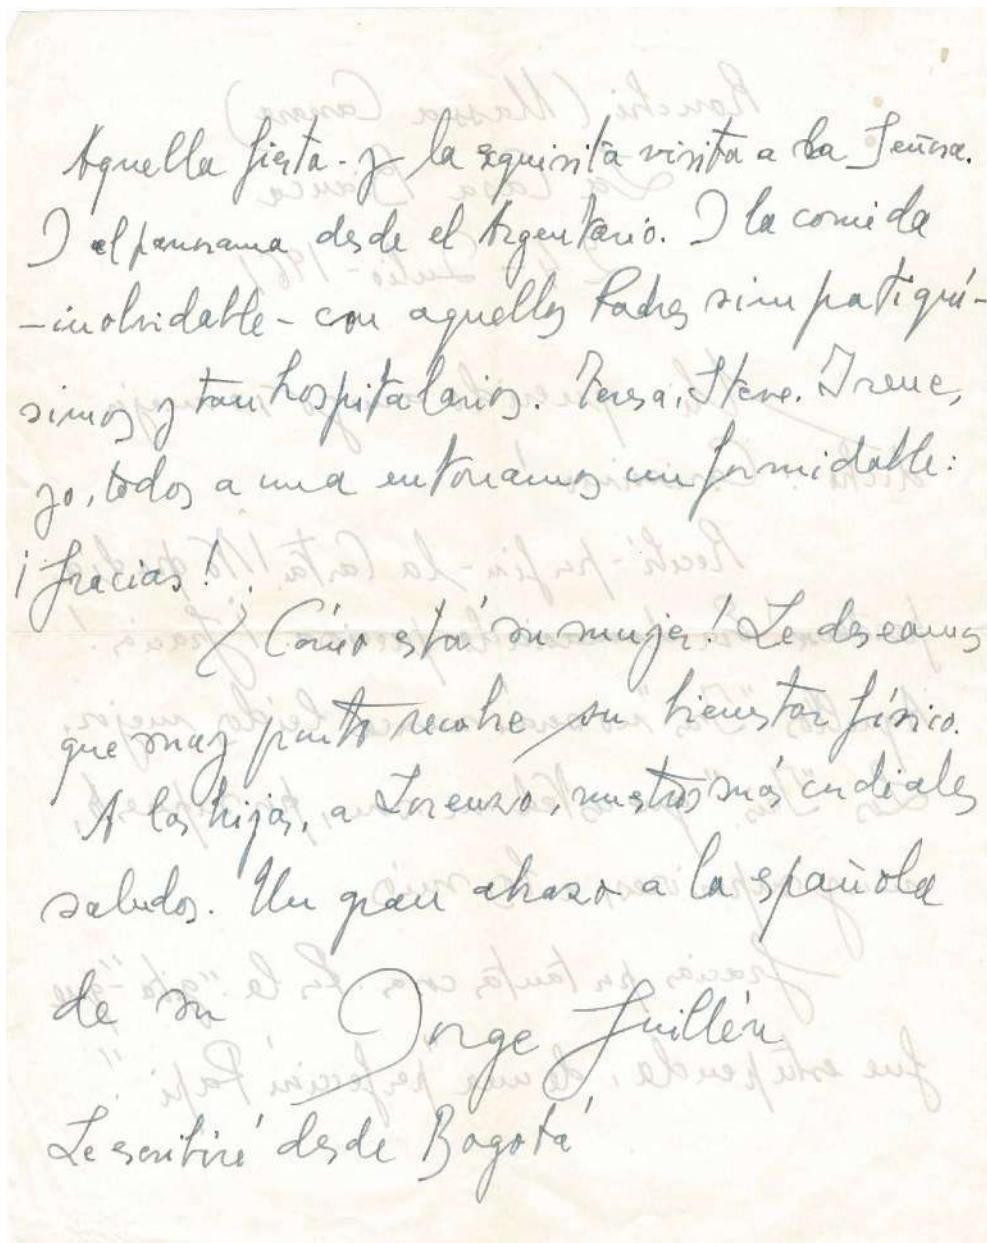 Aquella fiesta - y la exquisita visita a la Señora.
Y el panorama desde el Argentario. Y la comida
- inolvidable - con aquellos Padres simpatiquí-
simos y tan hospitalarios. Teresa, Steve, Irene,
yo, todos a una entonamos un formidable:
¡Gracias!
¿Cómo está su mujer? Le deseamos
que muy pronto recobre su bienestar físico.
A las hijas, a Lorenzo, nuestros más cordiales
saludos. Un gran abrazo a la española
de su Jorge Guillén
Le escribiré desde Bogotá